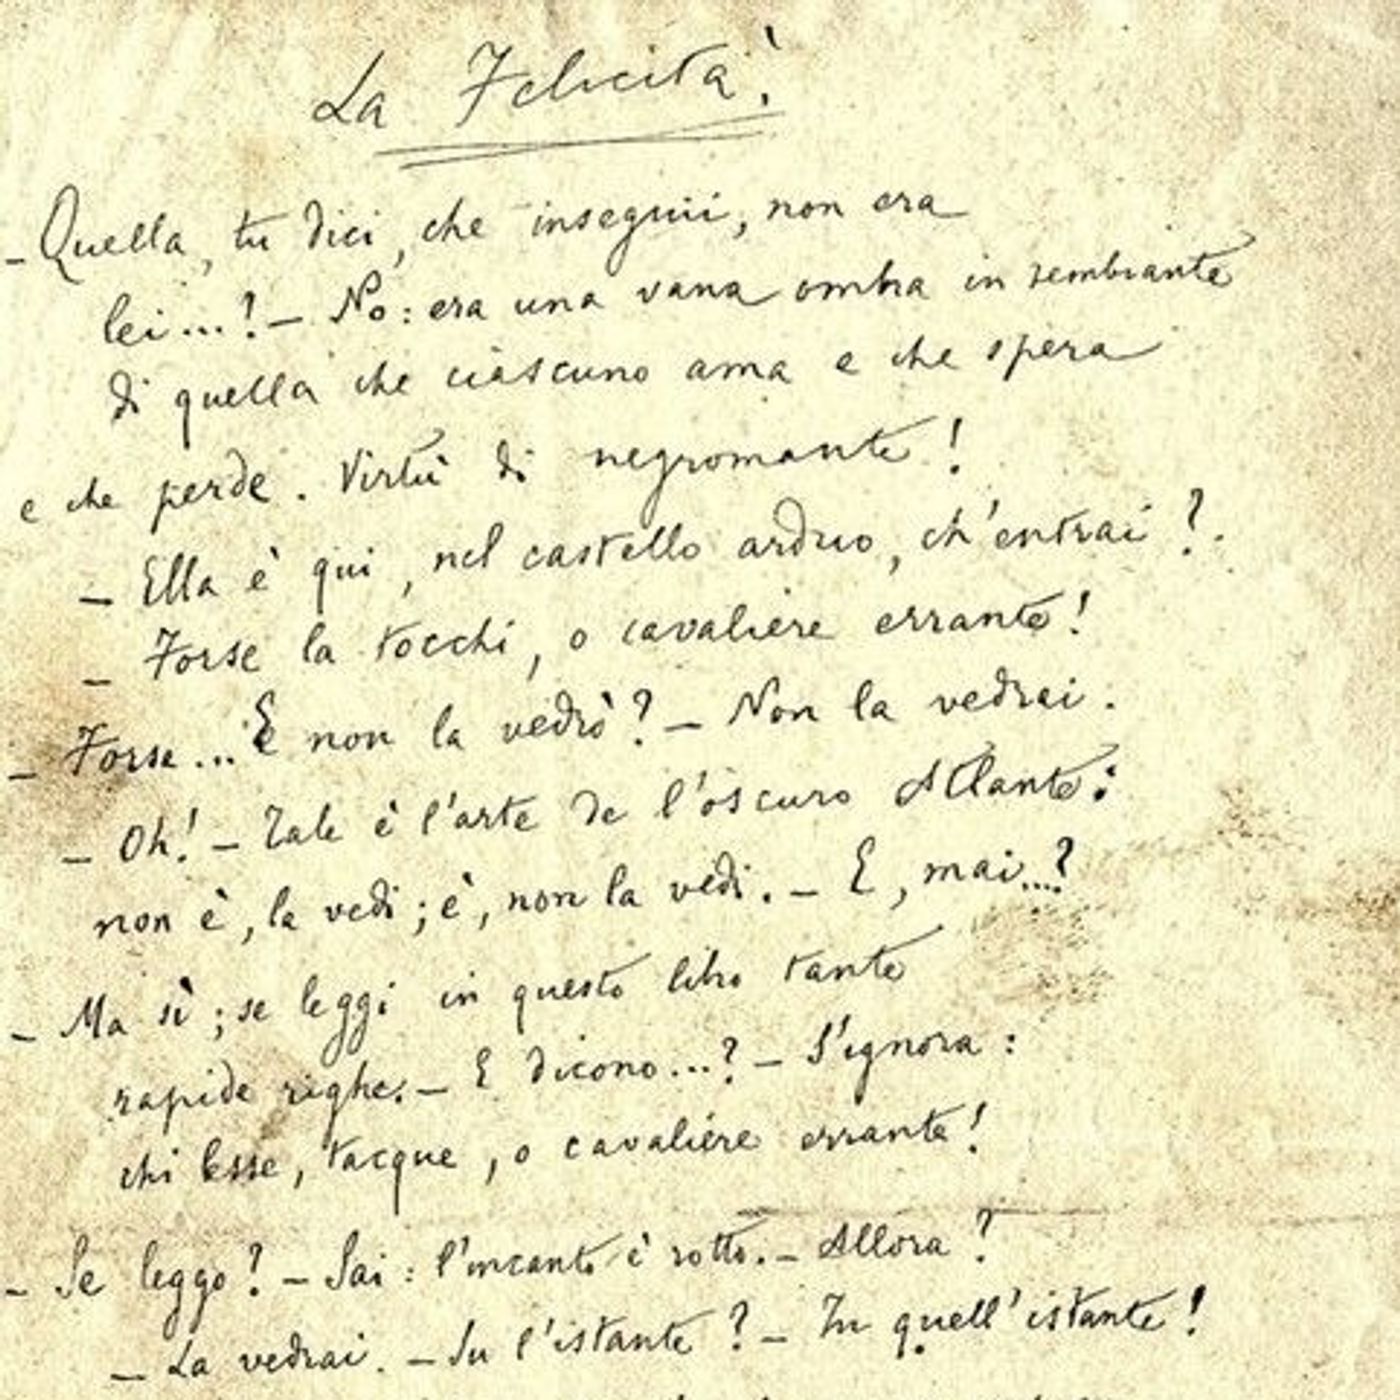 La Felicità.
– Quella, tu dici, che inseguii, non era
lei...! – No: era una vana ombra in sembiante
di quella che ciascuno ama e che spera
e che perde. Virtù di negromante!
– Ella è qui, nel castello arduo, ch'entrai?.
– Forse la tocchi, o cavaliere errante!
– Forse... E non la vedrò? – Non la vedrai.
– Oh! – Tale è l'arte de l'oscuro Atlante:
non è, la vedi; è, non la vedi. – E, mai...?
– Ma sì; se leggi in questo libro tante
rapide righe. – E dicono...? – S'ignora:
chi lesse, tacque, o cavaliere errante!
– Se leggo? – Sai: l'incanto è rotto. – Allora?
– La vedrai. – Su l'istante? – In quell'istante!